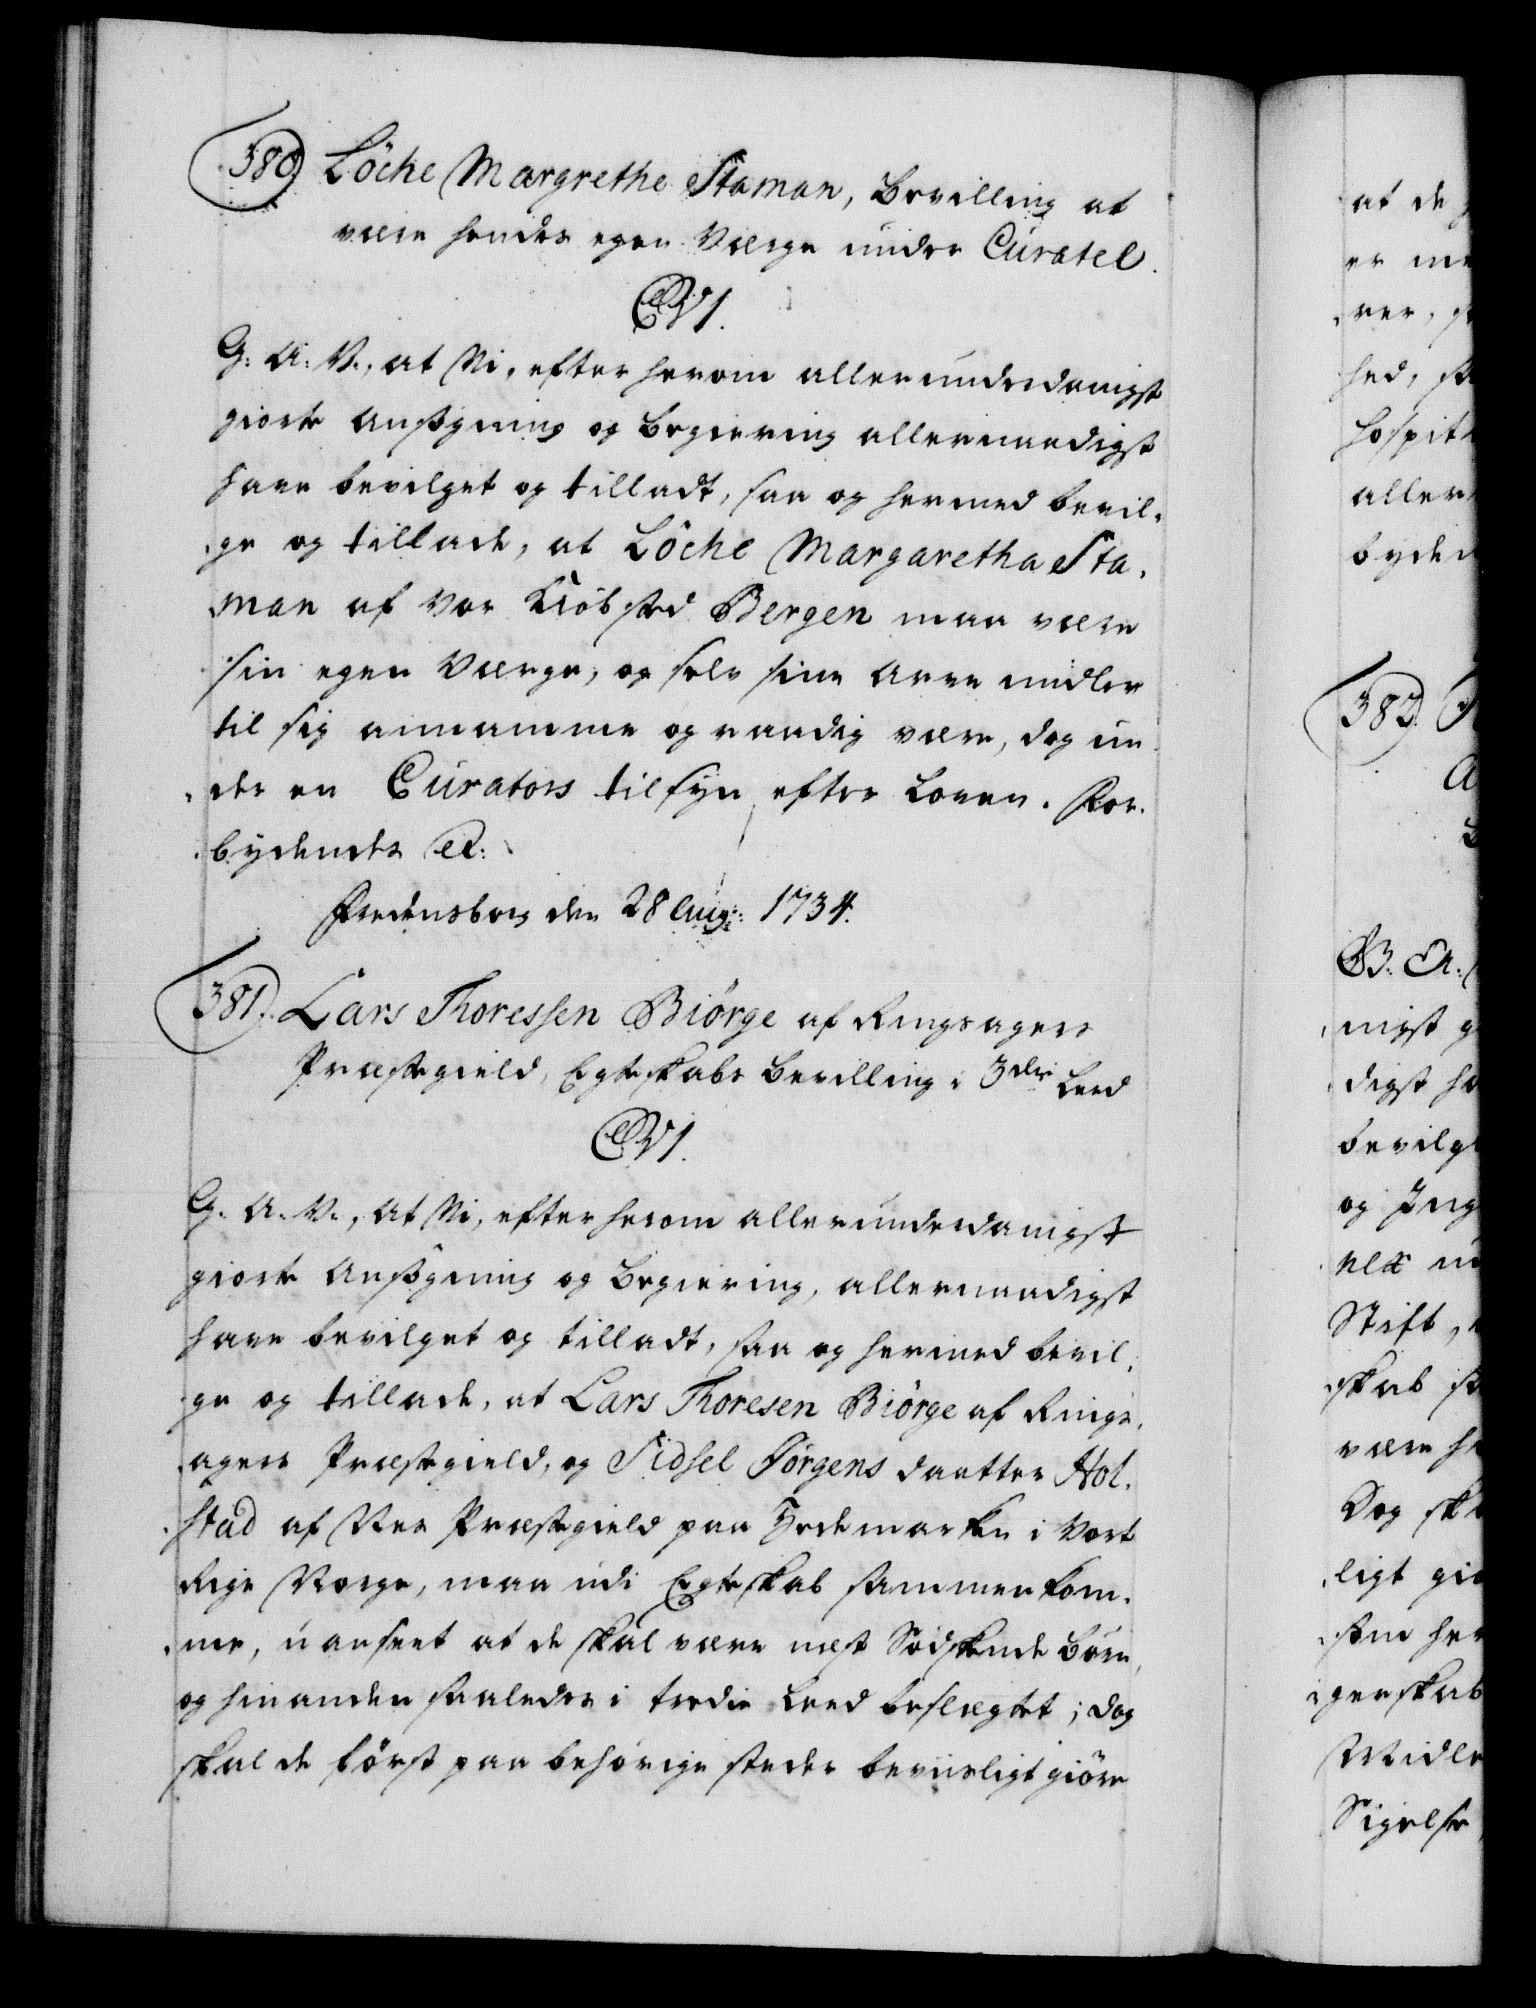 380) Löche Margrethe Staman, Bevilling at
være hendes egen Værge under Curatel.
CVI.
G: A: V., at Vi, efter herom allerunderdanigst
giorte Ansøgning og Begiering allernaadigst
have bevilget og tilladt, saa og hermed bevil-
ge og tillade, at Löche Margaretha Sta-
man af Vor Kiöbsted Bergen maa være
sin egen Værge, og selv sine Arve midler
til sig annamme og raadig være, dog un
der en Curators tilsyn efter Loven. For-
bydendes etc:
Fredensborg den 28 Aug: 1734.
381). Lars Thoressen Biörge af Ringsagers
Præstegield, Egteskabs Bevilling i 3die Leed
CVI.
G. A. V., At Vi, efter herom allerunderdanigst
giorte Ansøgning og Begiering, allernaadigst
have bevilget og tilladt, saa og hermed bevil-
ge og tillade, at Lars Thoresen Biörge af Rings-
agers Præstegield, og Sidsel Jörgens daatter Hol-
stad af Næs Præstegield paa Hedemarken i Vort
Rige Norge, maa udi Egteskab sammenkom-
me, uanseet at de skal være næst Sødskende Børn,
og hinanden saaledes i tredie Leed beslægtet; dog
skal de först paa behørige steder beviisligt giöre
at de
er me
ver,
hed,
Hospit
aller
byden
382)
G. A.
nigst g
digst ha
bevilg
og Ing
næs
Stift,
skab
være h
Dog sk
ligt gi
som her
genskab
Midle
Sigelse